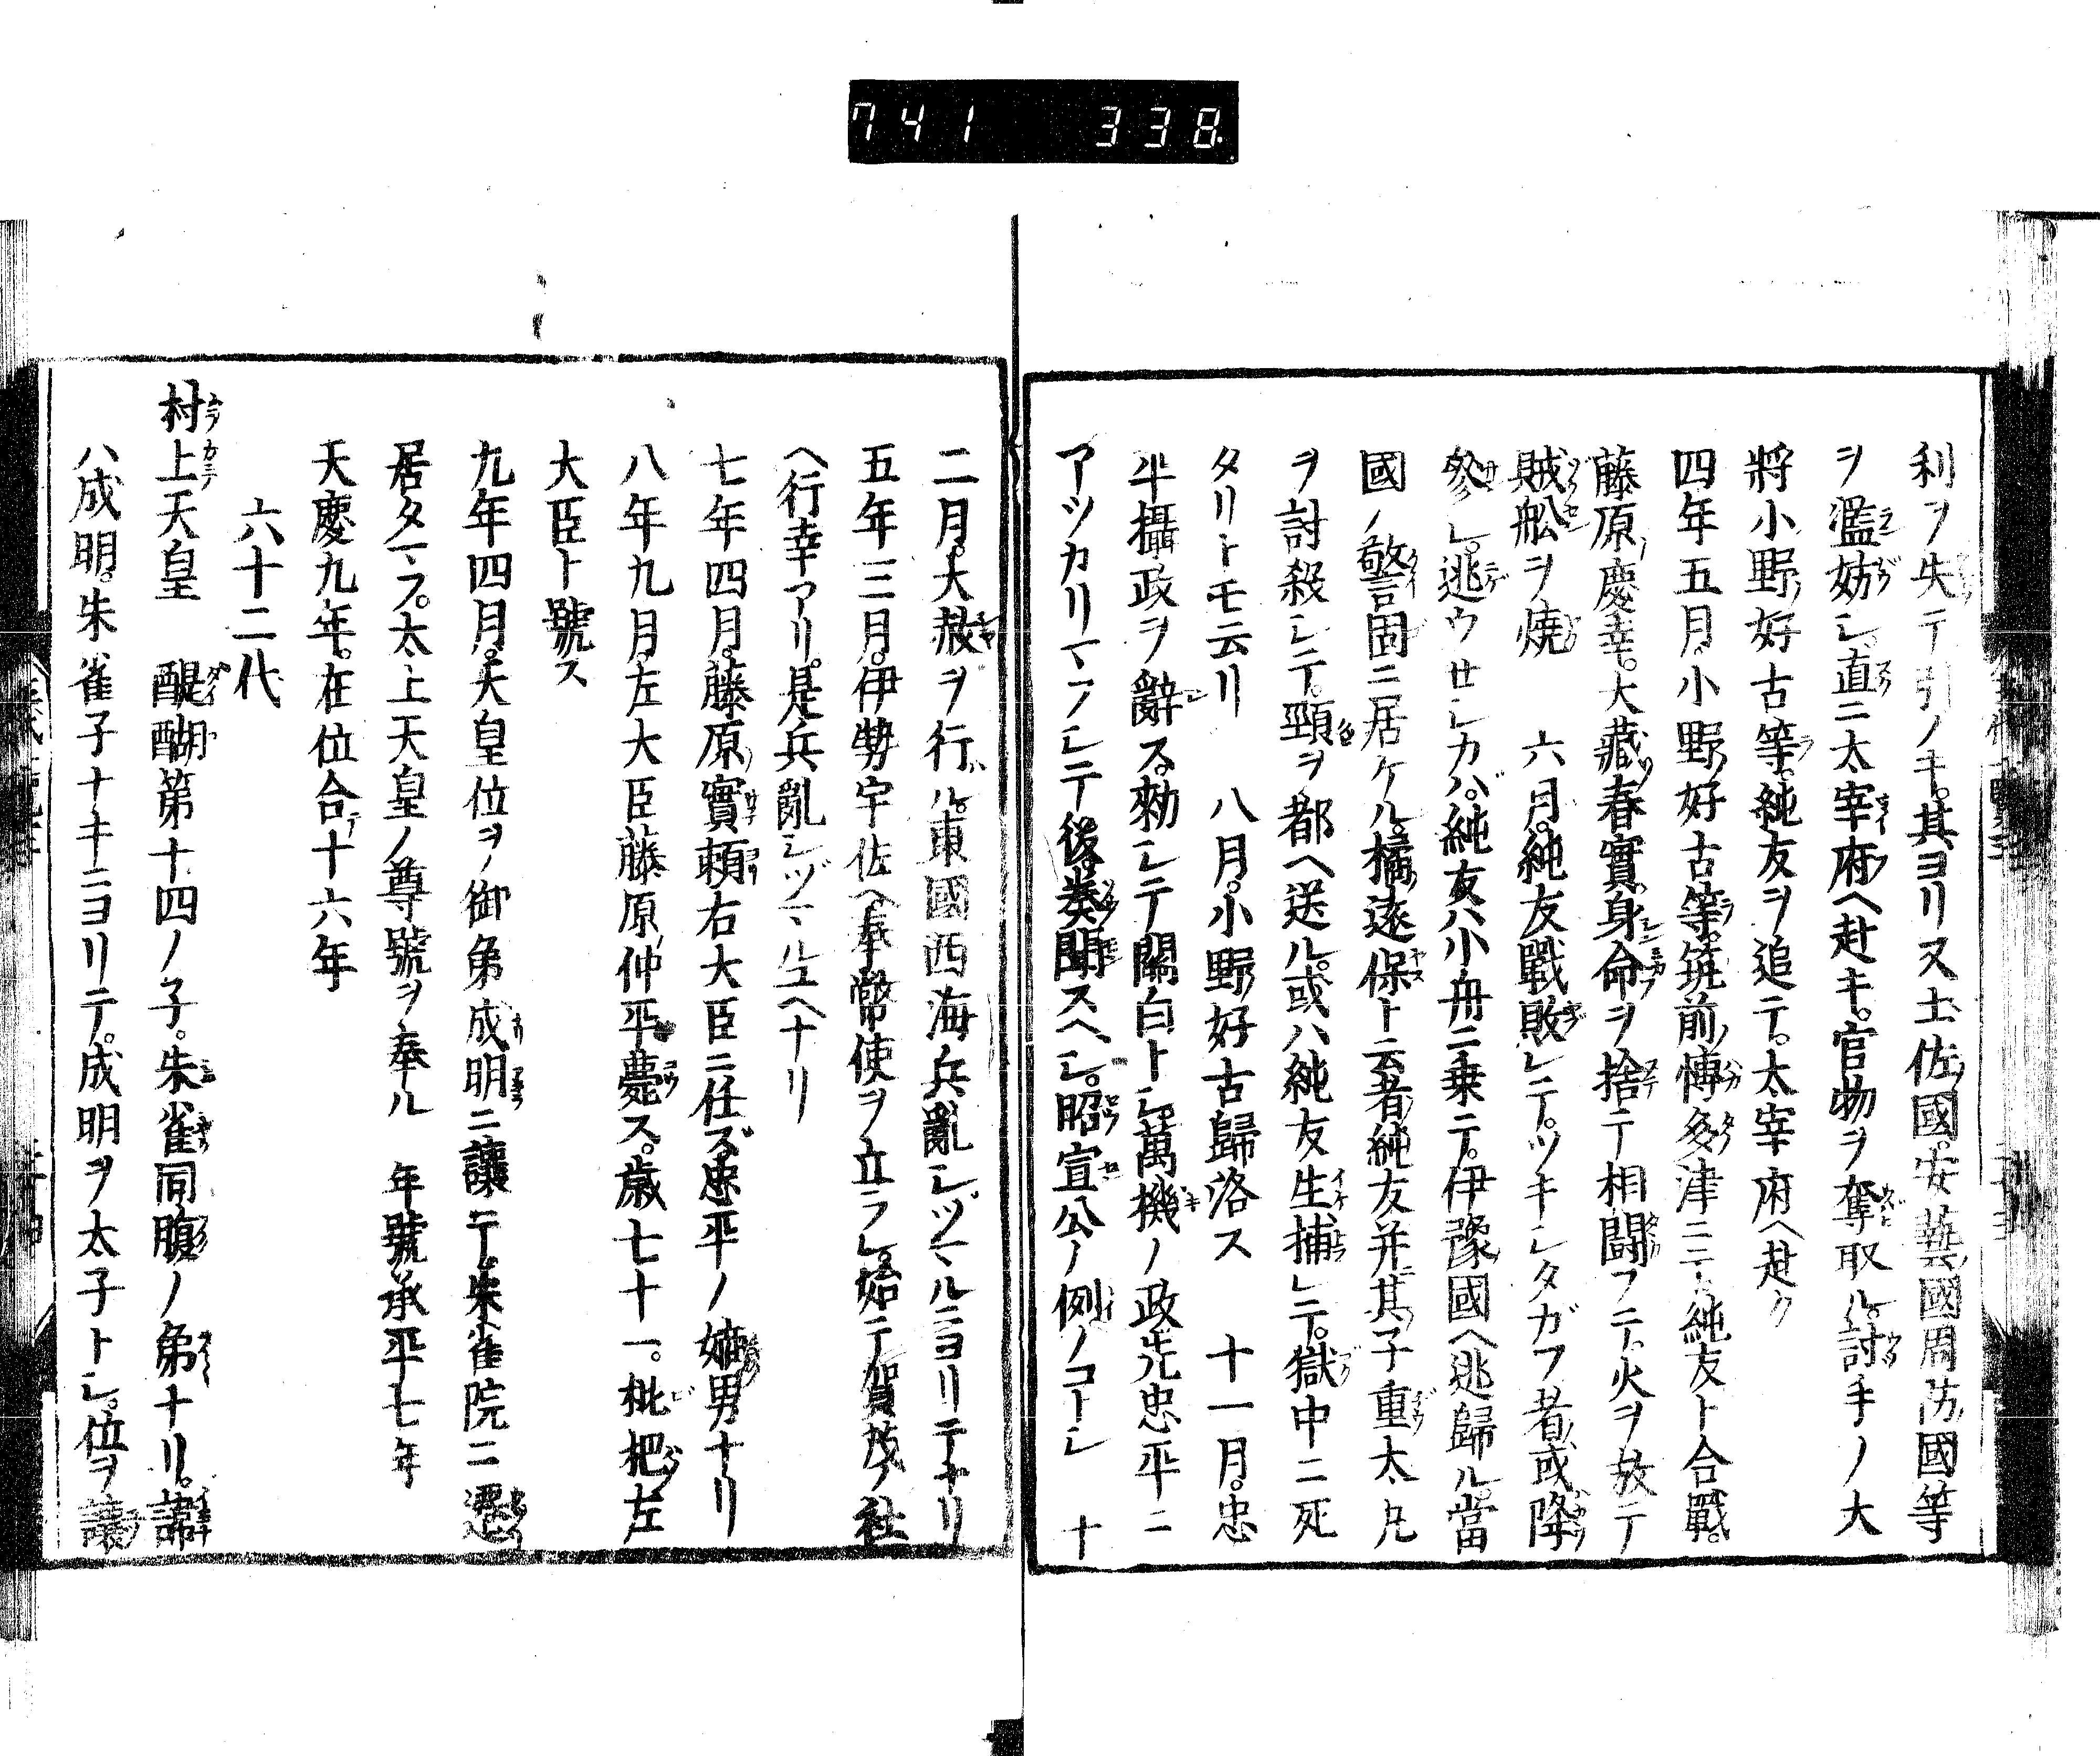 741 338
利ヲ失テ引ノキ。其ヨリ又土佐國。安藝國周防國等
ヲ濫妨シ。直ニ太宰府ヘ赴キ。官物ヲ奪取ル。討手ノ大
將小野好古等。純友ヲ追テ。太宰府ヘ赴ク
四年五月。小野好古等。筑前ノ博多津ニテ純友ト合戰。
藤原慶幸。大藏春實。身命ヲ捨テ相鬪フテ。火ヲ放テ
賊舩ヲ燒 六月。純友戰敗シテ。ツキシタガフ者或降
參シ。逃ウセシカバ。純友ハ小舟ニ乗テ。伊豫國ヘ逃歸ル。當
國ノ警固ニ居ケル。橘遠保ト云者純友并其子重太丸
ヲ討殺シテ。頸ヲ都ヘ送ル。或ハ純友生捕レテ。獄中ニ死
タリトモ云リ 八月。小野好古歸洛ス 十一月。忠
平攝政ヲ辭ス。勅シテ關白トシ。萬機ノ政先忠平ニ
アツカリマフシテ後奏聞スヘシ。昭宣公ノ例ノコトシ 十
二月。大赦ヲ行ル。東國西海兵亂シヅマルニヨリテナリ
五年三月。伊勢宇佐ヘ奉幣使ヲ立ラレ。始テ賀茂ノ社
ヘ行幸アリ。是兵亂シヅマルユヘナリ
七年四月。藤原實頼右大臣ニ任ズ忠平ノ嫡男ナリ
八年九月。左大臣藤原仲平薨ス。歳七十一。枇把左
大臣ト號ス
九年四月。天皇位ヲ御弟成明ニ讓テ。朱雀院ニ遷
居タマフ。太上天皇ノ尊號ヲ奉ル 年號承平七年
天慶九年。在位合テ十六年
六十二代
村上天皇 醍醐第十四ノ子。朱雀同腹ノ弟ナリ。諱
ハ成明。朱雀子ナキニヨリテ。成明ヲ太子トシ。位ヲ讓